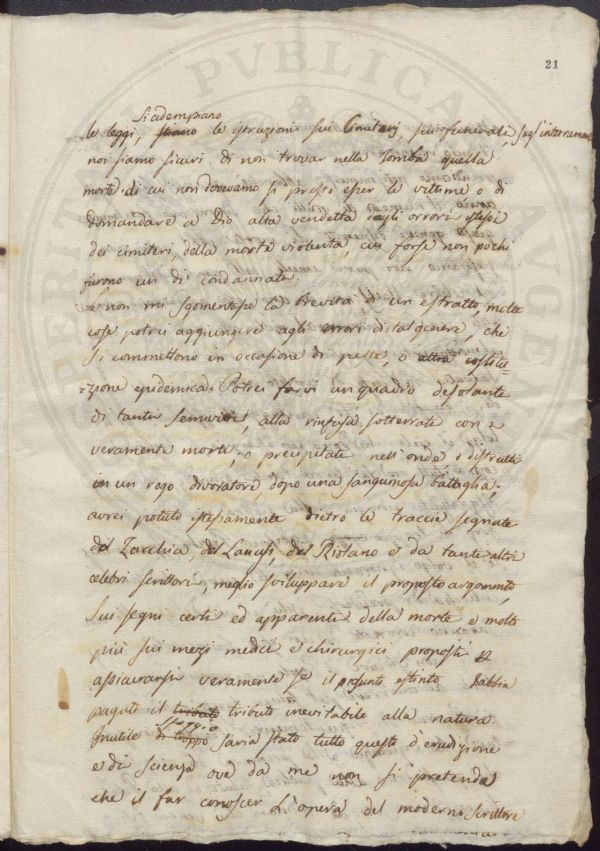 21
Si adempiano
le leggi, siano le istruzioni sui Cimiterj sui funerali, sugl'interramen
noi siamo sicuri di non trovar nella tomba quella
morte di cui non dovevamo sì presto esser le vittime o di
domandare a Dio alta vendetta degli orrori istessi
dei cimiteri, della morte violenta, cui forse non pochi
furono un dì condannati.
e non mi sgomentasse la brevità d'un estratto, molte
cose potrei aggiungere agli errori di tal genere, che
si commettono in occasione di peste, o altra costitu-
=zione epidemica. Potrei farvi un quadro desolante
di tanti semivivi, alla rinfusa sotterrati con i
veramente morti, o precipitati nell'onde, o distrutti
in un rogo divoratore, dopo una sanguinosa battaglia,
avrei potuto istessamente dietro le traccie segnate
del Zacchia, del Lancisi, del Riolano e da tanti altri
celebri scrittori, meglio sviluppare il proposto argomento,
sui segni certi ed apparenti della morte e molto
più sui mezzi medici e chirurgici proposti
assicurarsi veramente se il presunto estinto habbia
pagato il tributo tributo inevitabile alla natura.
sfoggio
Inutile di troppo saria stato tutto questo d'erudizione
e di scienza ove da me non si pretenda
che il far conoscer l'opera del moderno scrittore